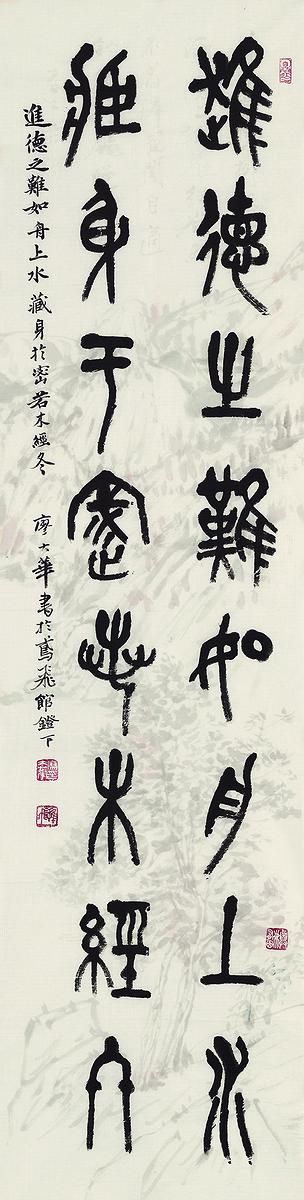 進德之難如舟上水
藏身于密若木經冬
進德之難如舟上水藏身於密若木經冬 廖大華書於鳶飛館鐙下